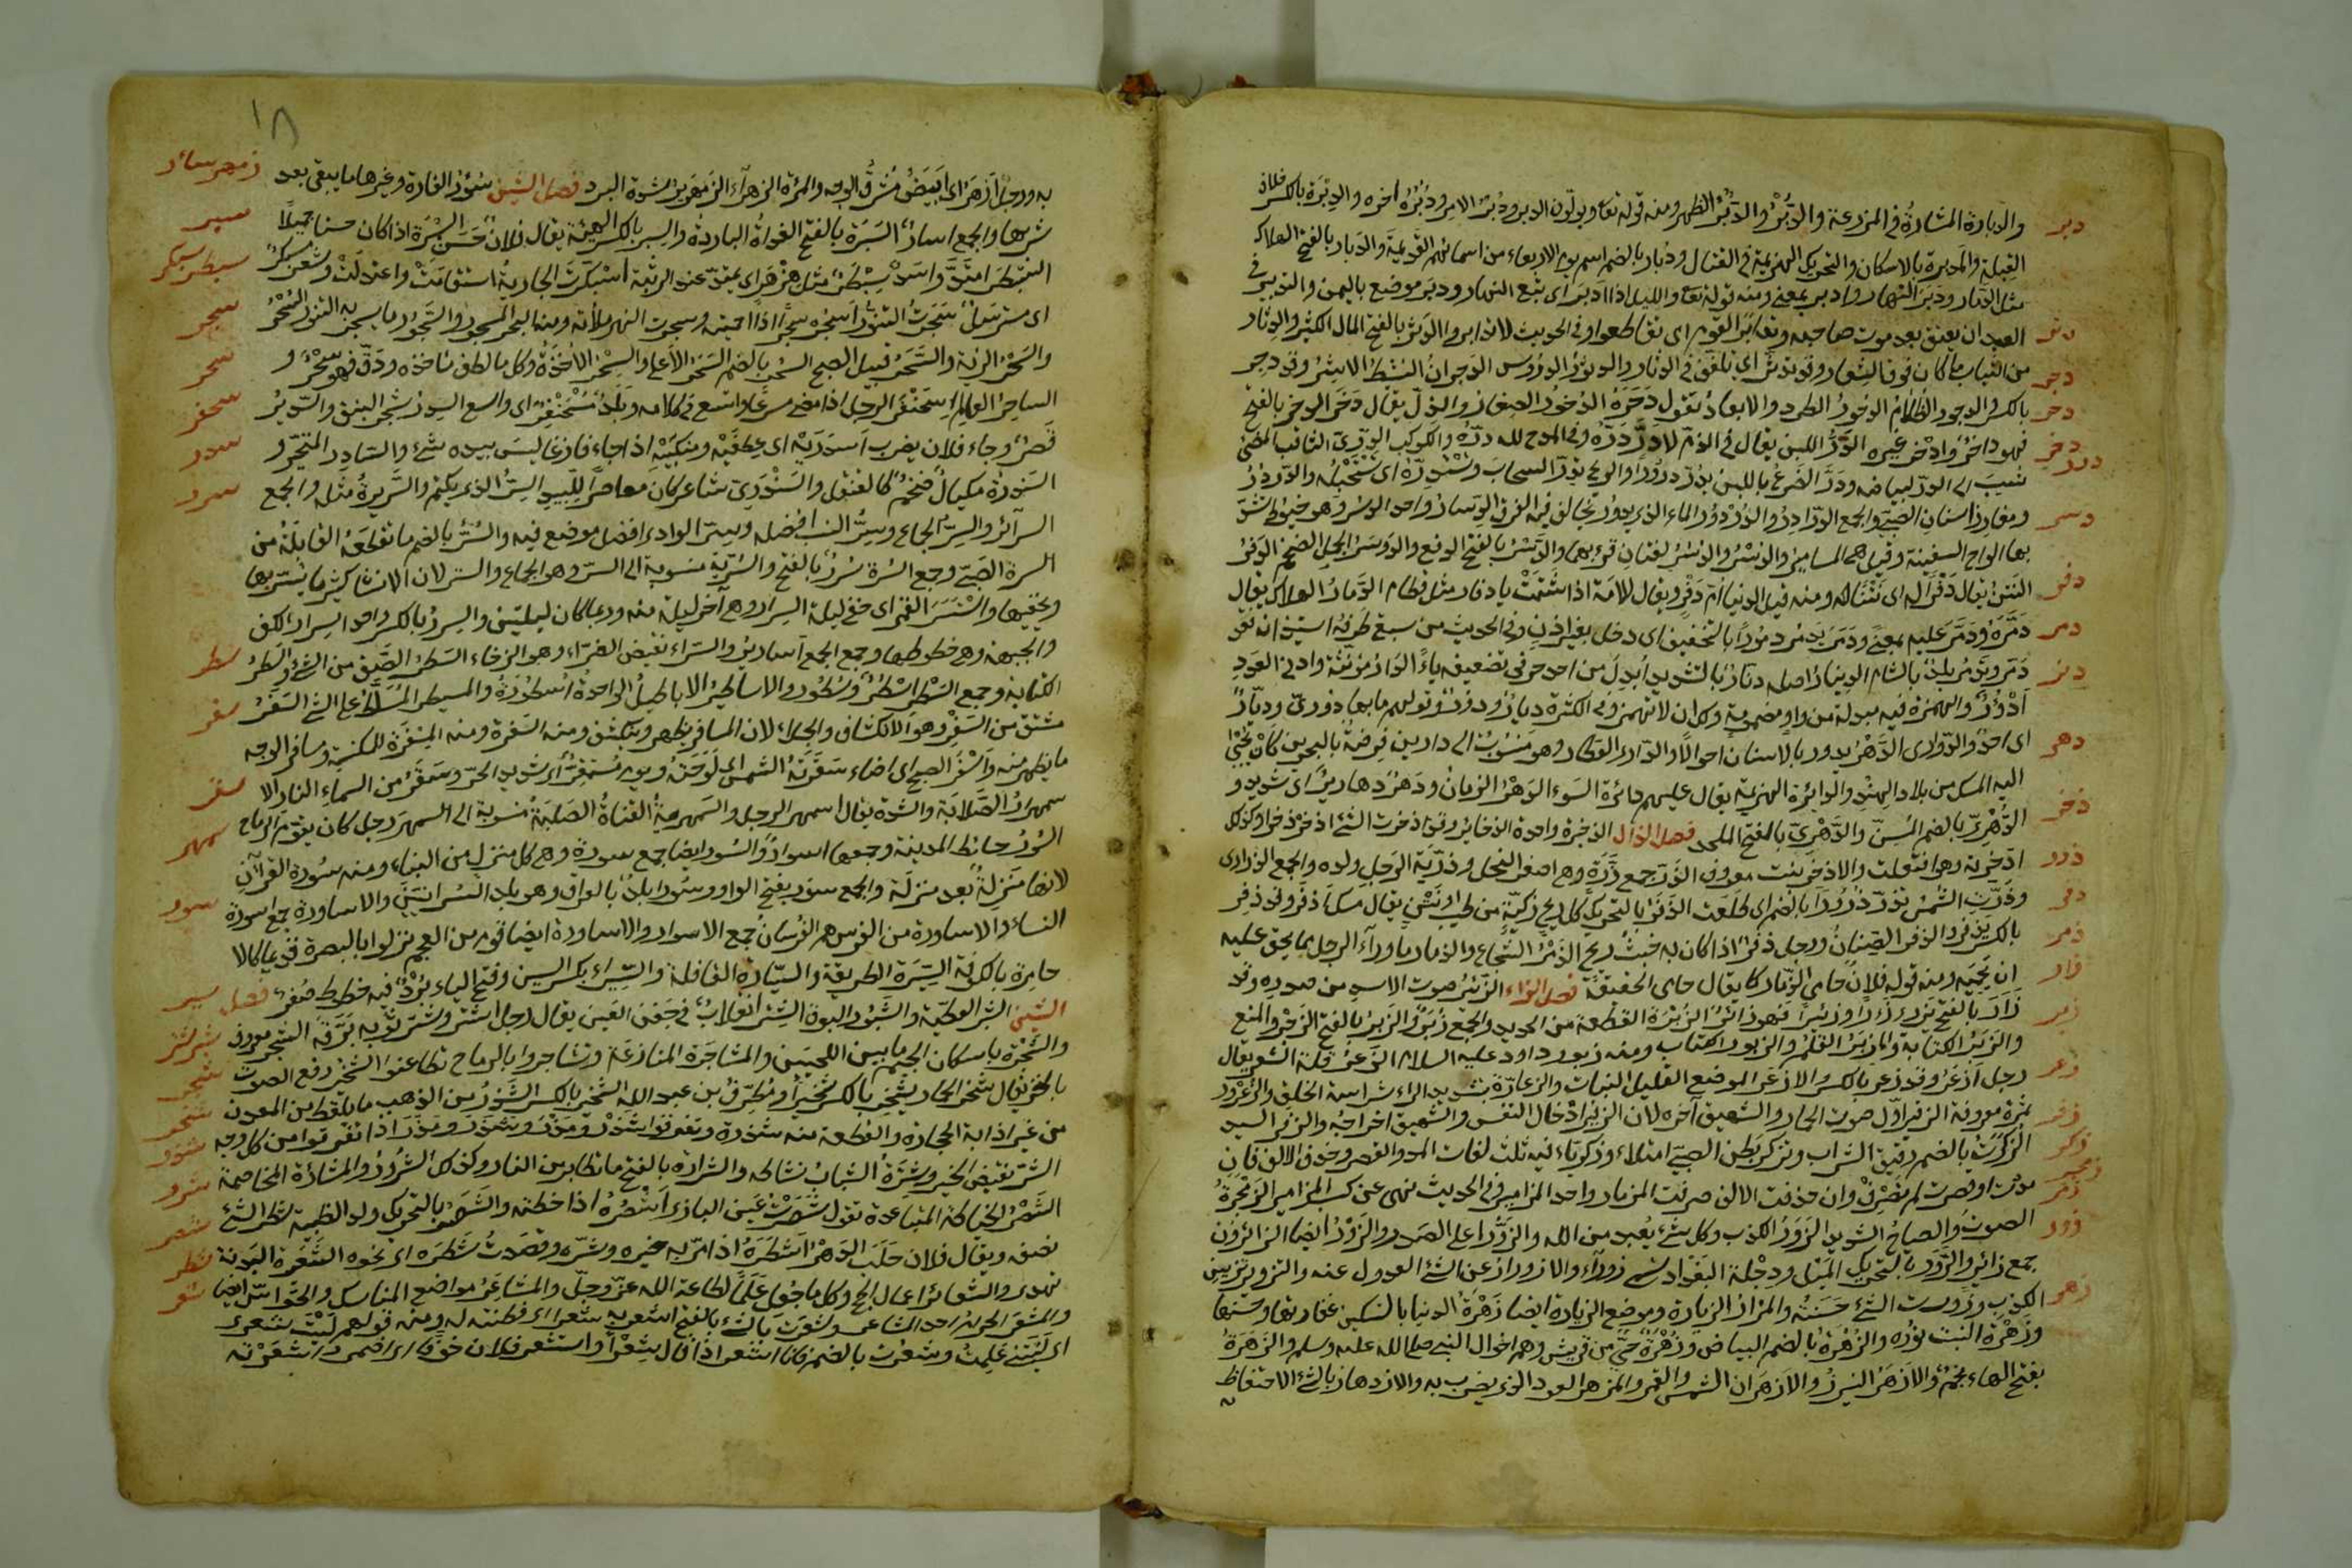 دبر والدبارة المشارة في المزرعة والدبر والدبر الظهر ومنه قوله تعا ويولون الدبر ودبر الامر ودبره اخره والدبرة بالكسر خلاف
القبلة والدبرة بالاسكان والتحريك الهزيمة في القتال ودبار بالضم اسم يوم الاربعاء من اسمائهم القديمة والدبار بالفتح الهلاك
مثل الدمار ودبر النهار وادبر بمعنى ومنه قوله تعا والليل اذا ادبر اى تبع النهار ودبر موضع باليمن والتدبير في
دثر العبد ان يعتق بعد موت صاحبه وتدابر القوم اى تقاطعوا وفي الحديث لا تدابروا الدثر بالفتح المال الكثير والدثار
دجر من الثياب ما كان فوق الشعار وقد تدثر اى تلفف في الدثار والدثور الدروس الدجران النشط الاشر وقد دجر
دحر بالكسر والديجور الظلام الدحور الطرد والابعاد تقول دحره الدخور الصغار والذل يقال دخر الرجل بالفتح
دخر درر فهو داخر وادخر غيره الدر اللبن يقال في الذم لا در دره وفي المدح لله دره والكوكب الدرى الثاقب المضئ
نسب الى الدر لبياضه ودر الضرع باللبن يدر درورا والريح تدر السحاب وتستدره اى تستحلبه والدردر
دسر ومغارز اسنان الصبي والجمع الدرادر والدردور الماء الذي يدور يخاف فيه الغرق الدسار واحد الدسر وهو خيوط تشد
بها الواح السفينة وقيل هى المسامير والدسر والدسر لغتان قرئ بهما والدسر بالفتح الدفع والدوسر الجمل الضخم الدفر
دفر النتن يقال دفرا له اى نتنا له ومنه قيل للدنيا ام دفر ويقال للامة اذا شتمت يا دفار مثل قطام الدمار الهلاك يقال
دمر دمره ودمر عليه بمعنى ودمر يدمر دمورا بالتخفيف اى دخل بغير اذن وفي الحديث من سبق طرفه استيذانه فقد
دنر دمر وتدمر بلد بالشام الدينار اصله دنار بالتشديد ابدل من احد حرفي تضعيفه ياء الدار مؤنثة وادنى العدد
ادؤر والهمزة فيه مبدلة من واو مضمومة ولك ان لا تهمز وفي الكثرة ديار ودور وقولهم ما بها دورى وديار
دهر اى احد والدوارى الدهر يدور بالانسان احوالا والدارى العطار وهو منسوب الى دارين فرضة بالبحرين كان يحمل
اليه المسك من بلاد الهند والدايرة الهزيمة يقال عليهم دائرة السوء الدهر الزمان ودهر دهارير اى شديد و
ذخر الدهرى بالضم المسن والدهرى بالفتح الملحد فصل الذال الذخيرة واحدة الذخاير وقد ذخرت الشئ اذخره ذخرا وكذلك
ذرر ادخرته وهو افتعلت والاذخر نبت معروف الذر جمع ذرة وهى اصغر النمل وذرية الرجل ولده والجمع الذرارى
ذفر وذرت الشمس تذر ذرورا بالضم اى طلعت الذفر بالتحريك كل ريح ذكية من طيب او نتن يقال مسك اذفر وقد ذفر
ذمر بالكسر يذفر والذفر الصنان ورجل ذفر اذا كان به خبث ريح الذمر الشجاع والذمار ما وراء الرجل مما يحق عليه
زار ان يحميه ومنه قوله فلان حامى الذمار كما يقال حامى الحقيقة فصل الزاء الزئير صوت الاسد من صدره وقد
زبر زأر بالفتح يزءر زأرا وزئيرا فهو زائر الزبرة القطعة من الحديد والجمع زبر والزبر بالفتح الزجر والمنع
والزبر الكتابة والمزبر القلم والزبور الكتاب ومنه زبور داود عليه السلام الزعر قلة الشعر يقال
زعر رجل ازعر وقد زعر بالكسر والازعر الموضع القليل النبات والزعارة بتشديد الراء شراسة الخلق والزعرور
زفر ثمرة معروفة الزفير اول صوت الحمار والشهيق آخره لان الزفير ادخال النفس والشهيق اخراجه والزفر السيد
زكر الزكرة بالضم زقيق الشراب وتزكر بطن الصبى امتلاء وزكرياء فيه ثلث لغات المد والقصر وحذف الالف فان
زمجر زمر مددت او قصرت لم تصرف وان حذفت الالف صرفت المزمار واحد المزامير وفي الحديث نهى عن كسب المزامير الزمجرة
زور الصوت والصياح الشديد الزور الكذب وكل شئ يعبد من الله والزور اعلى الصدر والزور ايضا الزائرون
جمع زائر والزور بالتحريك الميل ودجلة البغداد تسمى زوراء والازورار عن الشئ العدول عنه والتزوير تزيين
زهر الكذب وزورت الشئ حسنته والمزار الزيارة وموضع الزيارة ايضا زهرة الدنيا بالتسكين غضارتها وحسنها
وزهرة النبت نوره والزهرة بالضم البياض وزهرة حى من قريش وهم اخوال النبى صلى الله عليه وسلم والزهرة
بفتح الهاء نجم والازهر النير والازهران الشمس والقمر والمزهر العود الذى يضرب به والازدهار بالشئ الاحتفاظ
١٨
به ورجل ازهر اى ابيض مشرق الوجه والمرءة الزهراء الزمهرير شدة البرد فصل السين سؤر الفارة وغيرها ما يبقى بعد زمهر سأر
شربها والجمع اسار السبرة بالفتح الغداة الباردة والسبر بالكسر الهيئة يقال فلان حسن السبر اذا كان حسنا جميلا سبر
اسبطر امتد واسد سبطر مثل هزبر اى يمتد عند الوثبة اسبكرت الجارية استقامت واعتدلت وشعر مسبكر سبطر سبكر
اى مسترسل سجرت التنور اسجره سجرا اذا احميته وسجرت النهر ملأته ومنه البحر المسجور والسجور ما يسجر به التنور السحر سجر
والسحر الرئة والسحر قبيل الصبح السحر بالضم السحر الاعلى والسحر الاخذة وكل ما لطف مأخذه ودق فهو سحر و سحر
الساحر العالم اسحنفر الرجل اذا مضى مسرعا واتسع في كلامه وبلد مسحنفر اى واسع السدر شجر النبق والسدير سحفر
قصر وجاء فلان يضرب اسدريه اى عطفيه ومنكبيه اذا جاء فارغا ليس بيده شئ والسادر المتحير و سدر
السندرة مكيال ضخم كالقنقل والسندرى شاعر كان معاصرا للبيد السر الذى يكتم والسريرة مثله والجمع سرر
السرائر والسر الجماع وسر النسب افضله وسر الوادى افضل موضع فيه والسر بالضم ما تقطعه القابلة من
السرة الصبى وجمع السرة سرر بالفتح والسرية منسوبة الى السر وهو الجماع والستر لان الانسان كثيرا ما يسر بها
ويخفيها واستسر القمر اى خفى ليلة السرار وهى آخر ليلة منه وربما كان ليلتين والسرر بالكسر واحد اسرار الكف
والجبهة وهى خطوطها وجمع الجمع اسارير والسراء نقيض الضراء وهو الرخاء السطر الصف من الشئ والسطر سطر
الكتابة وجمع السطر اسطر وسطور والاساطير الاباطيل الواحدة اسطورة والمسيطر المسلط على الشئ السفر سفر
مشتق من السفر وهو الانكشاف والجلاء لان المسافر يظهر وينكشف ومنه السفرة ومنه المسفرة للمكنسة ومسافر الوجه
ما يظهر منه واسفر الصبح اى اضاء سقرته الشمس اى لوحته ويوم مسمقر اى شديد الحر وسقر من اسماء النار الا سقر
سمهرار الصلابة والشدة يقال اسمهر الرجل والسمهرية القناة الصلبة منسوبة الى السمهر رجل كان يقوم الرماح سمهر
السور حائط المدينة وجمعها اسوار والسور ايضا جمع سورة وهى كل منزلة من البناء ومنه سورة القرآن
لانها منزلة بعد منزلة والجمع سور بفتح الواو وسورا بلد بالعراق وهو بلد السريانيين والاساورة جمع اسورة سور
النساء والاساورة من الفرس هم الفرسان جمع الاسوار والاساورة ايضا قوم من العجم نزلوا بالبصرة قديما كالا
حامرة بالكوفة السيرة الطريقة والسيارة القافلة والسيراء بكسر السين وفتح الياء برد فيه خطوط صفر فصل سير
الشين الشبر العطية والشبور البوق الشتر انقلاب في جفن العين يقال رجل اشتر وشتر ثوبه مزقه الشجر معروف شبر شتر
والشجرة باسكان الجيم ما بين اللحيين والمشاجرة المنازعة وتشاجروا بالرماح تطاعنوا الشخر رفع الصوت شجر
بالنخر يقال شخر الحمار يشخر بالكسر شخيرا ومطرف بن عبد الله الشخير بالكسر الشذر من الذهب ما يلقط من المعدن شخر
من غير اذابة الحجارة والقطعة منه شذرة وتفرقوا شذر ومذر وشذر ومذر اذا تفرقوا من كل وجه شذر
الشر نقيض الخير وشرة الشباب نشاطه والشرارة بالفتح ما تطاير من النار وكذلك الشرر والمشارة المخاصمة شرر
الشصر الخياطة المتباعدة تقول شصرت عين البازى اشصره اذا خطته والشصر بالتحريك ولد الظبية شطر الشئ شصر
نصفه ويقال فلان حلب الدهر اشطره اذا مر به خيره وشره وقصدت شطره اى نحوه الشعيرة البدنة شطر
تهدى والشعائر اعمال الحج وكل ما جعل علما لطاعة الله عز وجل والمشاعر مواضع المناسك والحواس ايضا شعر
والمشعر الحرام احد المشاعر وشعرت بالشئ بالفتح اشعر به شعرا اى فطنت له ومنه قولهم ليت شعرى
اى ليتنى علمت وشعرت بالضم فانا اشعر اذا قال شعرا واستشعر فلان خوفا اى اضمر واشعرته